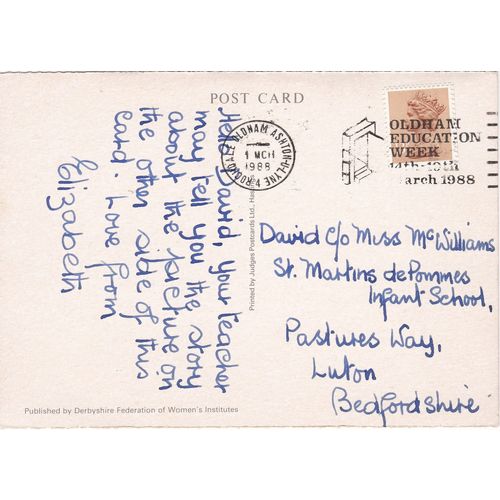 POST CARD
Hello David, your teacher
may tell you the story
about the picture on
the other side of this
card. Love from
Elizabeth
Printed by Judges Postcards Ltd.,
ROCHDALE OLDHAM ASHTON-U-LYNE
1 MCH
1988
OLDHAM
EDUCATION
WEEK
arch 1988
David c/o Miss McWilliams
St. Martins de Pommes
Infant School,
Pastures Way,
Luton
Bedfordshire
Published by Derbyshire Federation of Women's Institutes